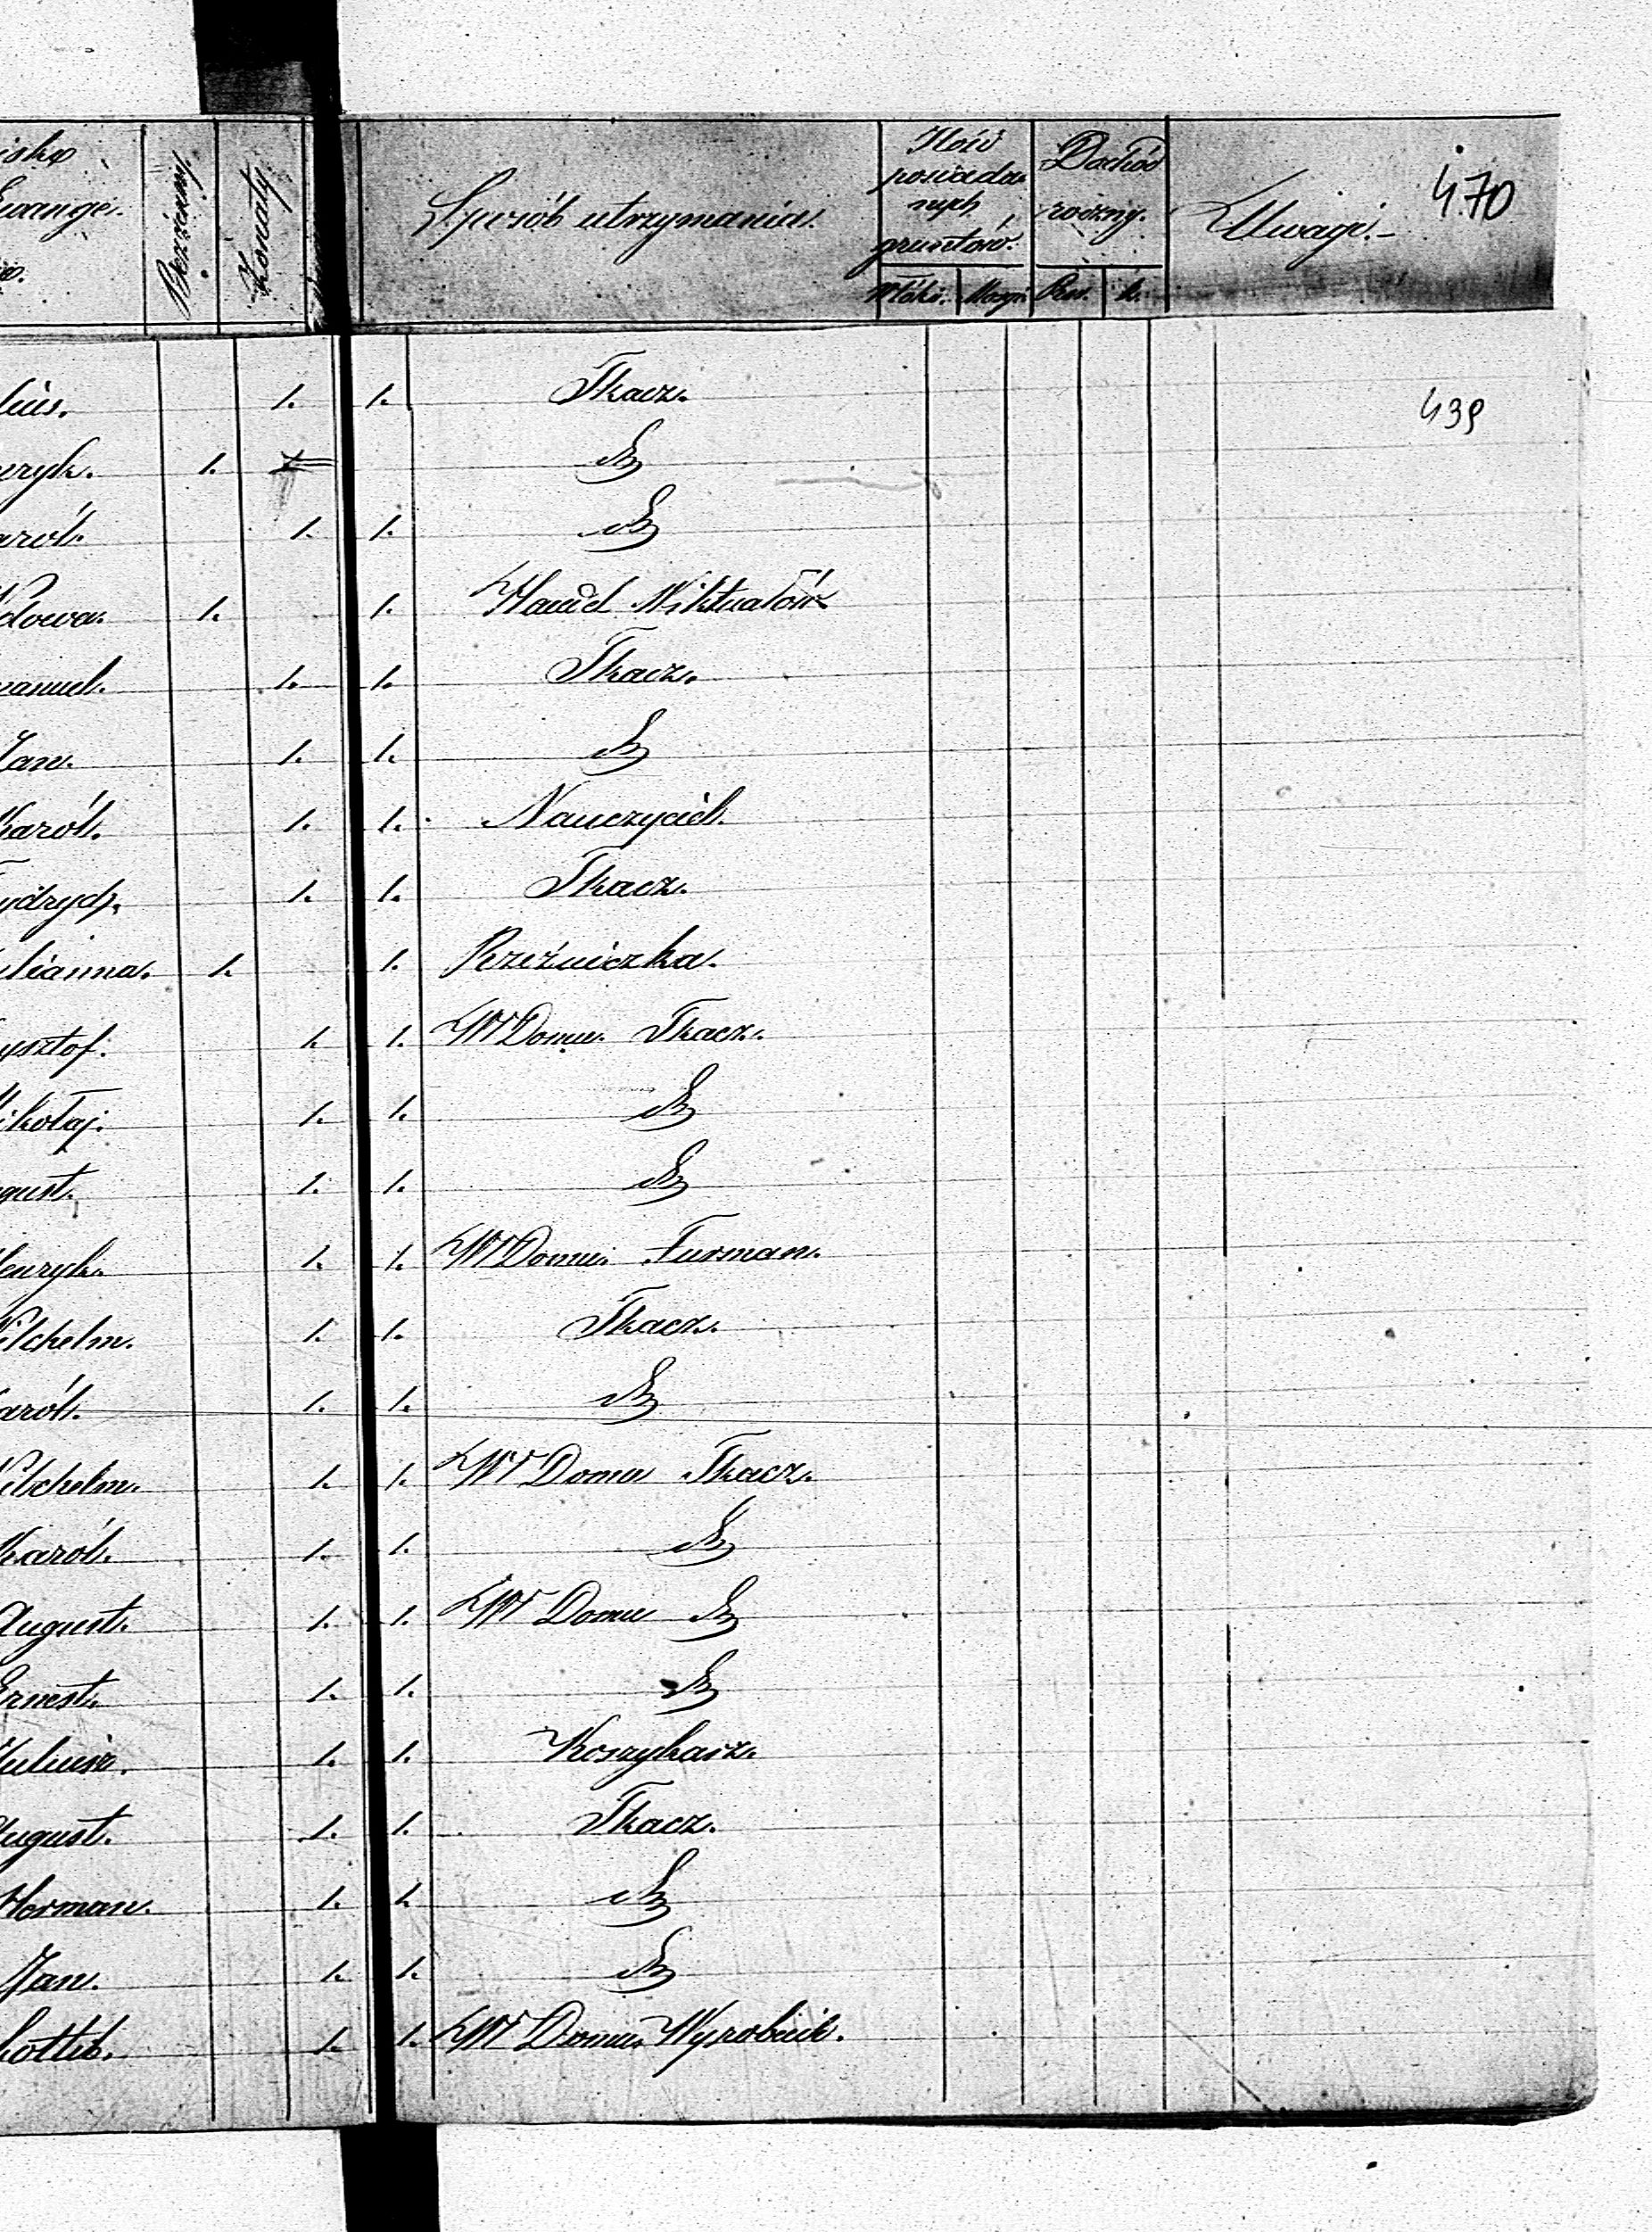 isko
Ewange.
Bezżenny.
Żonaty.
Sposób utrzymania.
Ilość
posiada
nych
gruntów.
Włók. Morgi
Dochód
roczny.
Rs. k.
Uwagi.
470
439
lius. 1. 1. Tkacz.
eryk. 1.
aról. 1. 1.
dowa. 1. 1. Handel Wiktuałów
anuel. 1. 1. Tkacz.
Jan. 1. 1.
Karól. 1. 1. Nauczyciel.
ydrych. 1. 1. Tkacz.
ulianna. 1. 1. Rzeźniczka.
ysztof. 1. 1. W Domu Tkacz.
ikołaj. 1. 1.
gust. 1. 1.
Henryk. 1. 1. W Domu Furman.
Wilchelm. 1. 1. Tkacz.
aról. 1. 1.
Wilchelm. 1. 1. W Domu Tkacz.
Karól. 1. 1.
August. 1. 1. W Domu
Ernest. 1. 1.
Juliusz. 1. 1. Koszykarz.
August. 1. 1. Tkacz.
Herman. 1. 1.
Jan. 1. 1.
Gottlib. 1. 1. W Domu Wyrobnik.